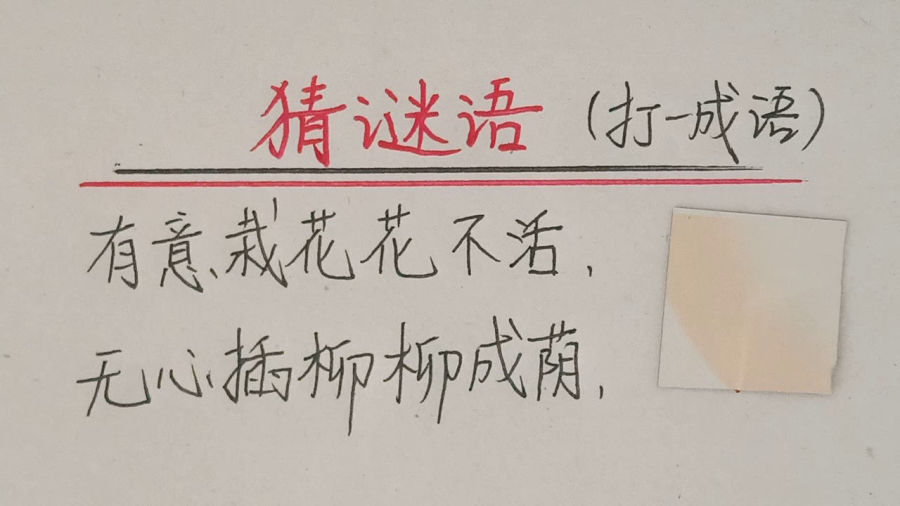 猜谜语（打一成语）
有意栽花花不活，
无心插柳柳成荫，